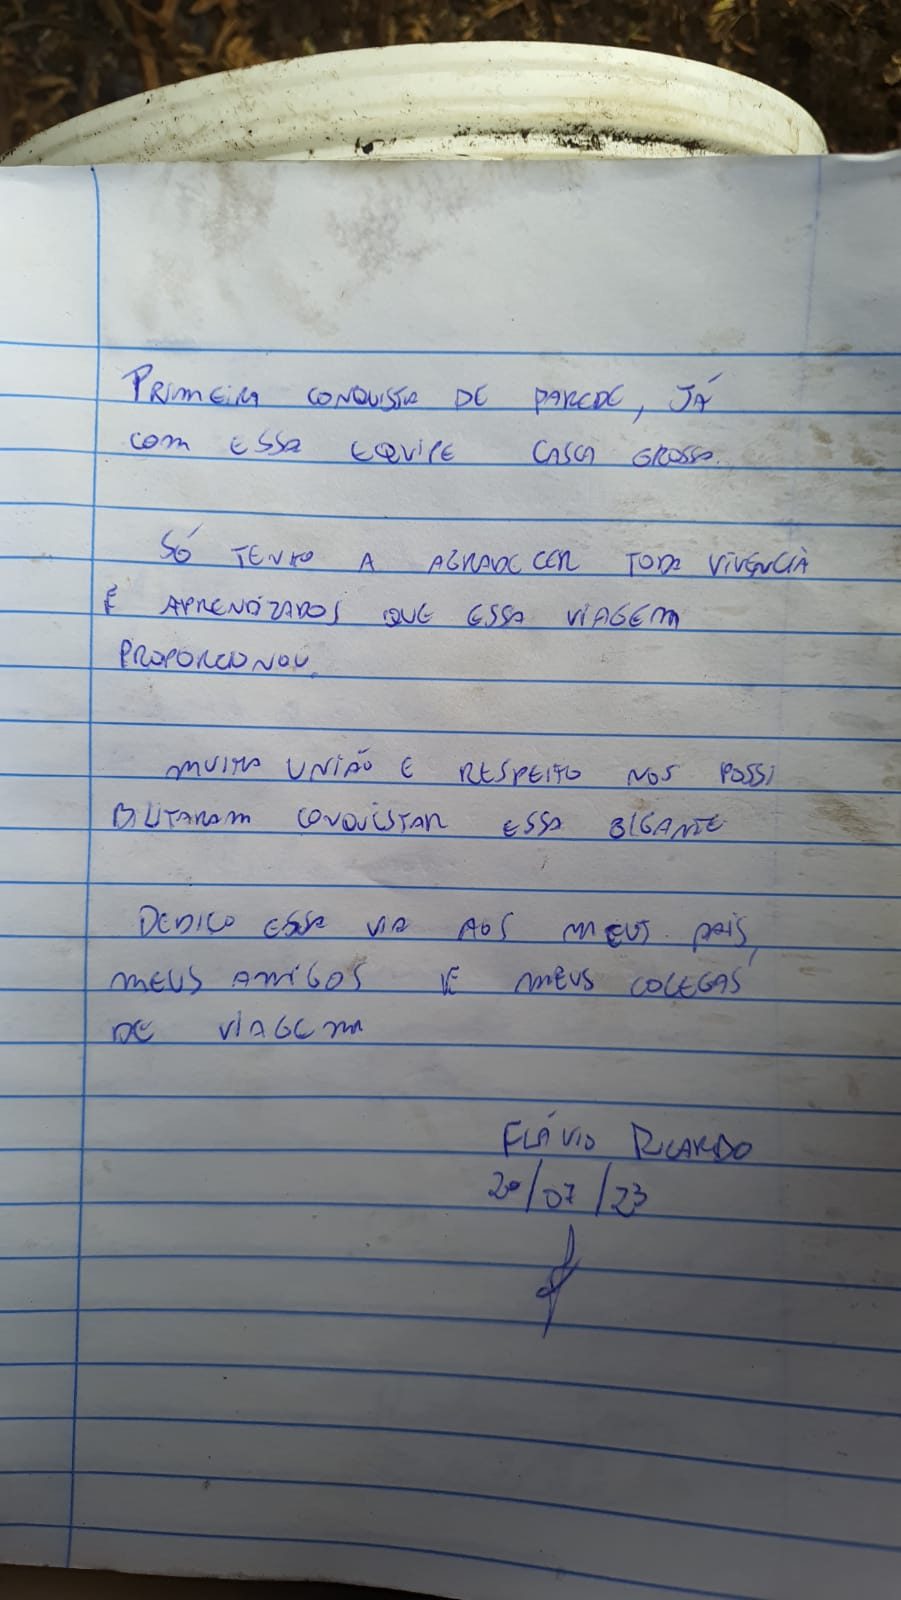 PRIMEIRA CONQUISTA DE PAREDE, JÁ
COM ESSA EQUIPE CASCA GROSSA.
SÓ TENHO A AGRADECER TODA VIVENCIA
E APRENDIZADOS QUE ESSA VIAGEM
PROPORCIONOU.
MUITA UNIÃO E RESPEITO NOS POSSI
BILITARAM CONQUISTAR ESSA GIGANTE
DEDICO ESSA VIA AOS MEUS PAIS,
MEUS AMIGOS E MEUS COLEGAS
DE VIAGEM
FLÁVIO RICARDO
20/07/23